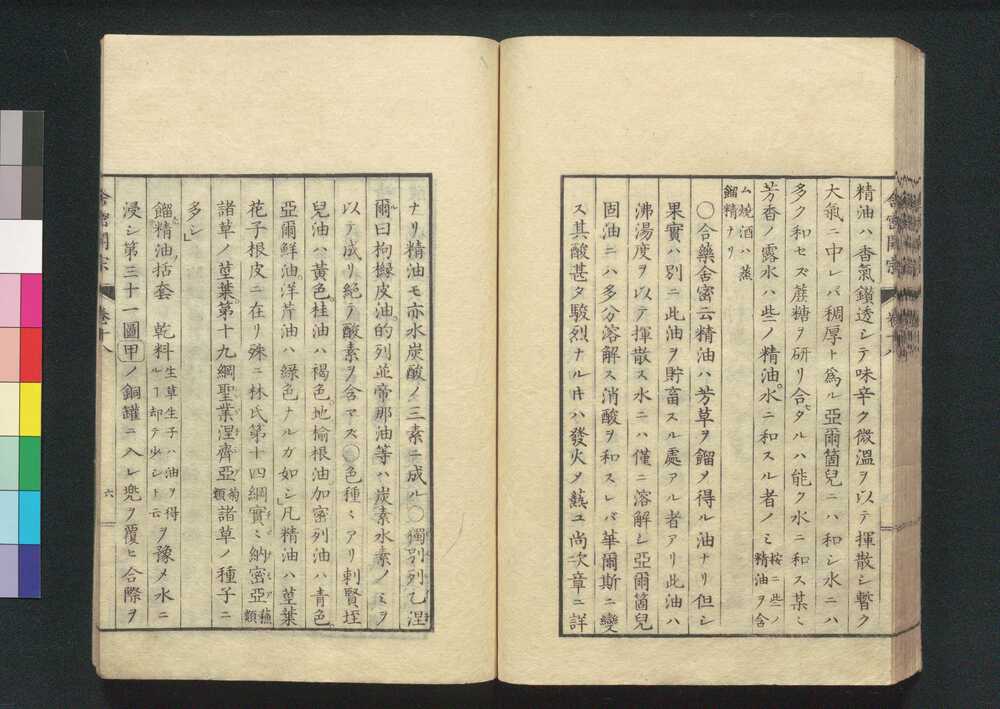 精油ハ香氣鑽透シテ味辛ク微溫ヲ以テ揮散シ暫ク
大氣ニ中レバ稠厚ト爲ル亞爾箇兒ニハ和シ水ニハ
多ク和セズ蔗糖ヲ研リ合タルハ能ク水ニ和ス某ミ
芳香ノ露水ハ些ノ精油水ニ和スル者ノミ
按ニ些ノ
精油ヲ含
ム燒酒ハ蒸
餾精ナリ
〇合藥舍密云精油ハ芳草ヲ餾メ得ル油ナリ但シ
果實ハ別ニ此油ヲ貯畜スル處アル者アリ此油ハ
沸湯度ヲ以テ揮散ス水ニハ僅ニ溶解シ亞爾箇兒
固油ニハ多分溶解ス消酸ヲ和スレバ華爾斯ニ變
ス其酸甚タ駿烈ナル件ハ發火メ爇ユ尚次章ニ詳
舍密開宗 卷十八
ナリ精油モ亦水炭酸ノ三素ニ成ル〇獨別列乙涅
爾曰枸櫞皮油的列並帝那油等ハ炭素水素ノミヲ
以テ成リ絶テ酸素ヲ含マズ〇色種ミアリ刺賢垤
兒油ハ黃色桂油ハ褐色地榆根油加密列油ハ青色
亞爾鮮油洋芹油ハ綠色ナルガ如シ凡精油ハ莖葉
花子根皮ニ在リ殊ニ林氏第十四綱實ミ納密亞蘓類
諸草ノ莖葉第十九綱聖業涅齊亞菊類諸草ノ種子ニ
多シ
餾精油括套 乾料
生草生子ハ油ヲ得
ルヿ却テ少シト云
ヲ豫メ水ニ
浸シ第三十一圖甲ノ銅罐ニ入レ兜ヲ覆ヒ合際ヲ
舍密開宗 卷十八
六